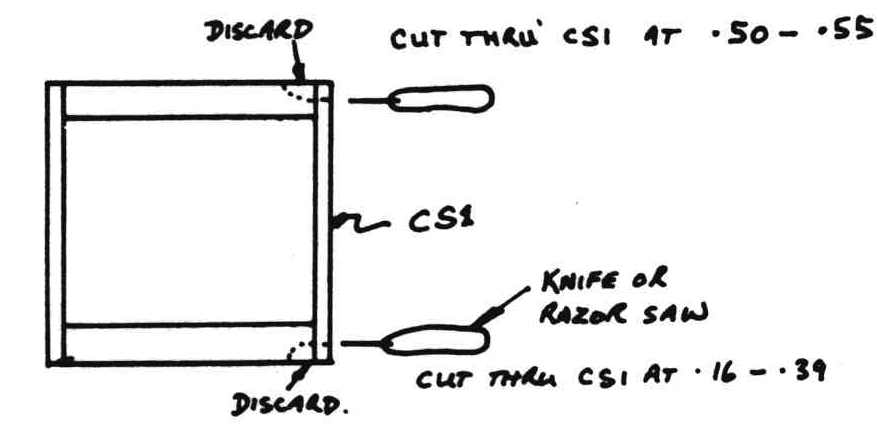 DISCARD
CUT THRU' CS1 AT .50 - .55
CS1
KNIFE OR
RAZOR SAW
CUT THRU CS1 AT .16 - .39
DISCARD.